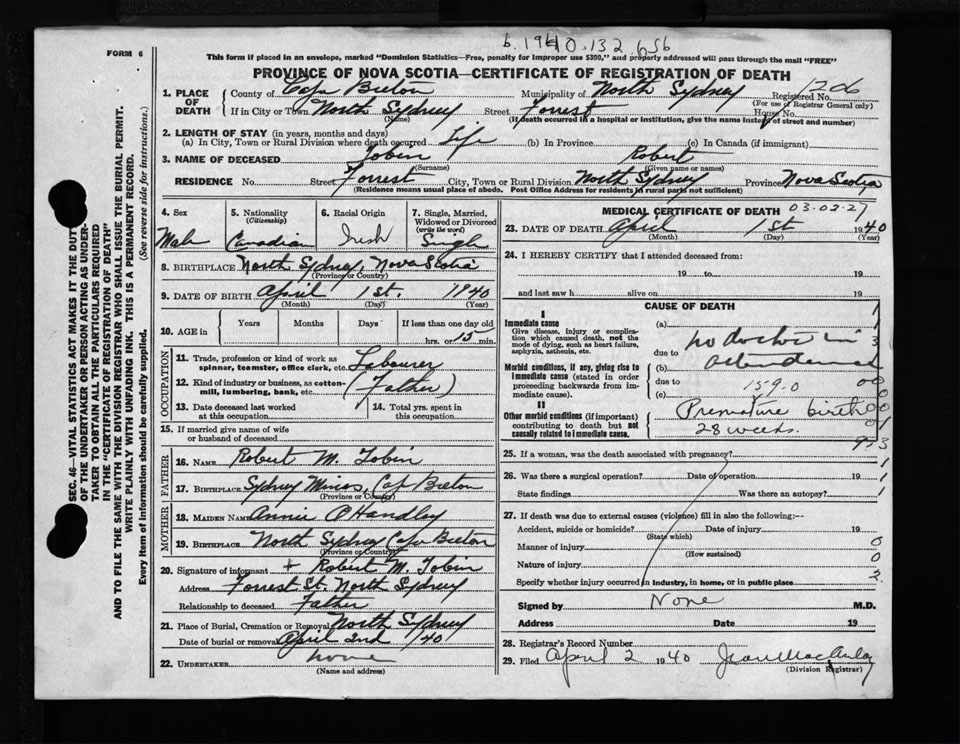 b. 1940. 132. 656
FORM 6
This form if placed in an envelope, marked "Dominion Statistics—Free, penalty for improper use $300," and properly addressed will pass through the mail "FREE"
PROVINCE OF NOVA SCOTIA—CERTIFICATE OF REGISTRATION OF DEATH
SEC. 46—VITAL STATISTICS ACT MAKES IT THE DUTY
OF THE UNDERTAKER OR PERSON ACTING AS UNDER-
TAKER TO OBTAIN ALL THE PARTICULARS REQUIRED
IN THE "CERTIFICATE OF REGISTRATION OF DEATH"
AND TO FILE THE SAME WITH THE DIVISION REGISTRAR WHO SHALL ISSUE THE BURIAL PERMIT.
WRITE PLAINLY WITH UNFADING INK. THIS IS A PERMANENT RECORD.
Every item of information should be carefully supplied. (See reverse side for instructions.)
1. PLACE OF DEATH { County of Cape Breton Municipality of North Sydney Registered No. 1206
(For use of Registrar General only)
If in City or Town North Sydney Street Forrest House No.
(Name) (If death occurred in a hospital or institution, give the name instead of street and number)
2. LENGTH OF STAY (in years, months and days)
(a) In City, Town or Rural Division where death occurred Life (b) In Province (c) In Canada (if immigrant)
3. NAME OF DECEASED Tobin Robert
(Surname) (Given name or names)
RESIDENCE No. Street Forrest City, Town or Rural Division North Sydney Province Nova Scotia
(Residence means usual place of abode. Post Office Address for residents in rural parts not sufficient)
4. Sex Male
5. Nationality (Citizenship) Canadian
6. Racial Origin Irish
7. Single, Married, Widowed or Divorced (write the word) Single
8. BIRTHPLACE North Sydney, Nova Scotia
(Province or Country)
9. DATE OF BIRTH April 1st. 1940
(Month) (Day) (Year)
10. AGE in Years Months Days If less than one day old
hrs. or 15 min.
OCCUPATION
11. Trade, profession or kind of work as
spinner, teamster, office clerk, etc. Labourer
12. Kind of industry or business, as cotton-
mill, lumbering, bank, etc. (Father)
13. Date deceased last worked
at this occupation
14. Total yrs. spent in
this occupation
15. If married give name of wife
or husband of deceased
FATHER
16. NAME Robert M. Tobin
17. BIRTHPLACE Sydney Mines, Cape Breton
(Province or Country)
MOTHER
18. MAIDEN NAME Annie O'Handley
19. BIRTHPLACE North Sydney Cape Breton
(Province or Country)
20. Signature of informant + Robert M. Tobin
Address Forrest St. North Sydney
Relationship to deceased Father
21. Place of Burial, Cremation or Removal North Sydney
Date of burial or removal April 2nd /40
22. UNDERTAKER none
(Name and address)
MEDICAL CERTIFICATE OF DEATH 03.02.27
23. DATE OF DEATH April 1st 1940
(Month) (Day) (Year)
24. I HEREBY CERTIFY that I attended deceased from:
19 to 19
and last saw h alive on 19
CAUSE OF DEATH
I
Immediate cause
Give disease, injury or complica-
tion which caused death, not the
mode of dying, such as heart failure,
asphyxia, asthenia, etc.
(a)
due to no doctor in
(b) attendance
Morbid conditions, if any, giving rise to
immediate cause (stated in order
proceeding backwards from im-
mediate cause).
due to
(c) 159.0
II
Other morbid conditions (if important)
contributing to death but not
causally related to immediate cause.
Premature birth
28 weeks.
25. If a woman, was the death associated with pregnancy?
26. Was there a surgical operation? Date of operation 19
State findings Was there an autopsy?
27. If death was due to external causes (violence) fill in also the following:—
Accident, suicide or homicide? Date of injury 19
(State which)
Manner of injury
(How sustained)
Nature of injury
Specify whether injury occurred in industry, in home, or in public place
Signed by None M.D.
Address Date 19
28. Registrar's Record Number
29. Filed April 2 1940 Jean MacAulay
(Division Registrar)